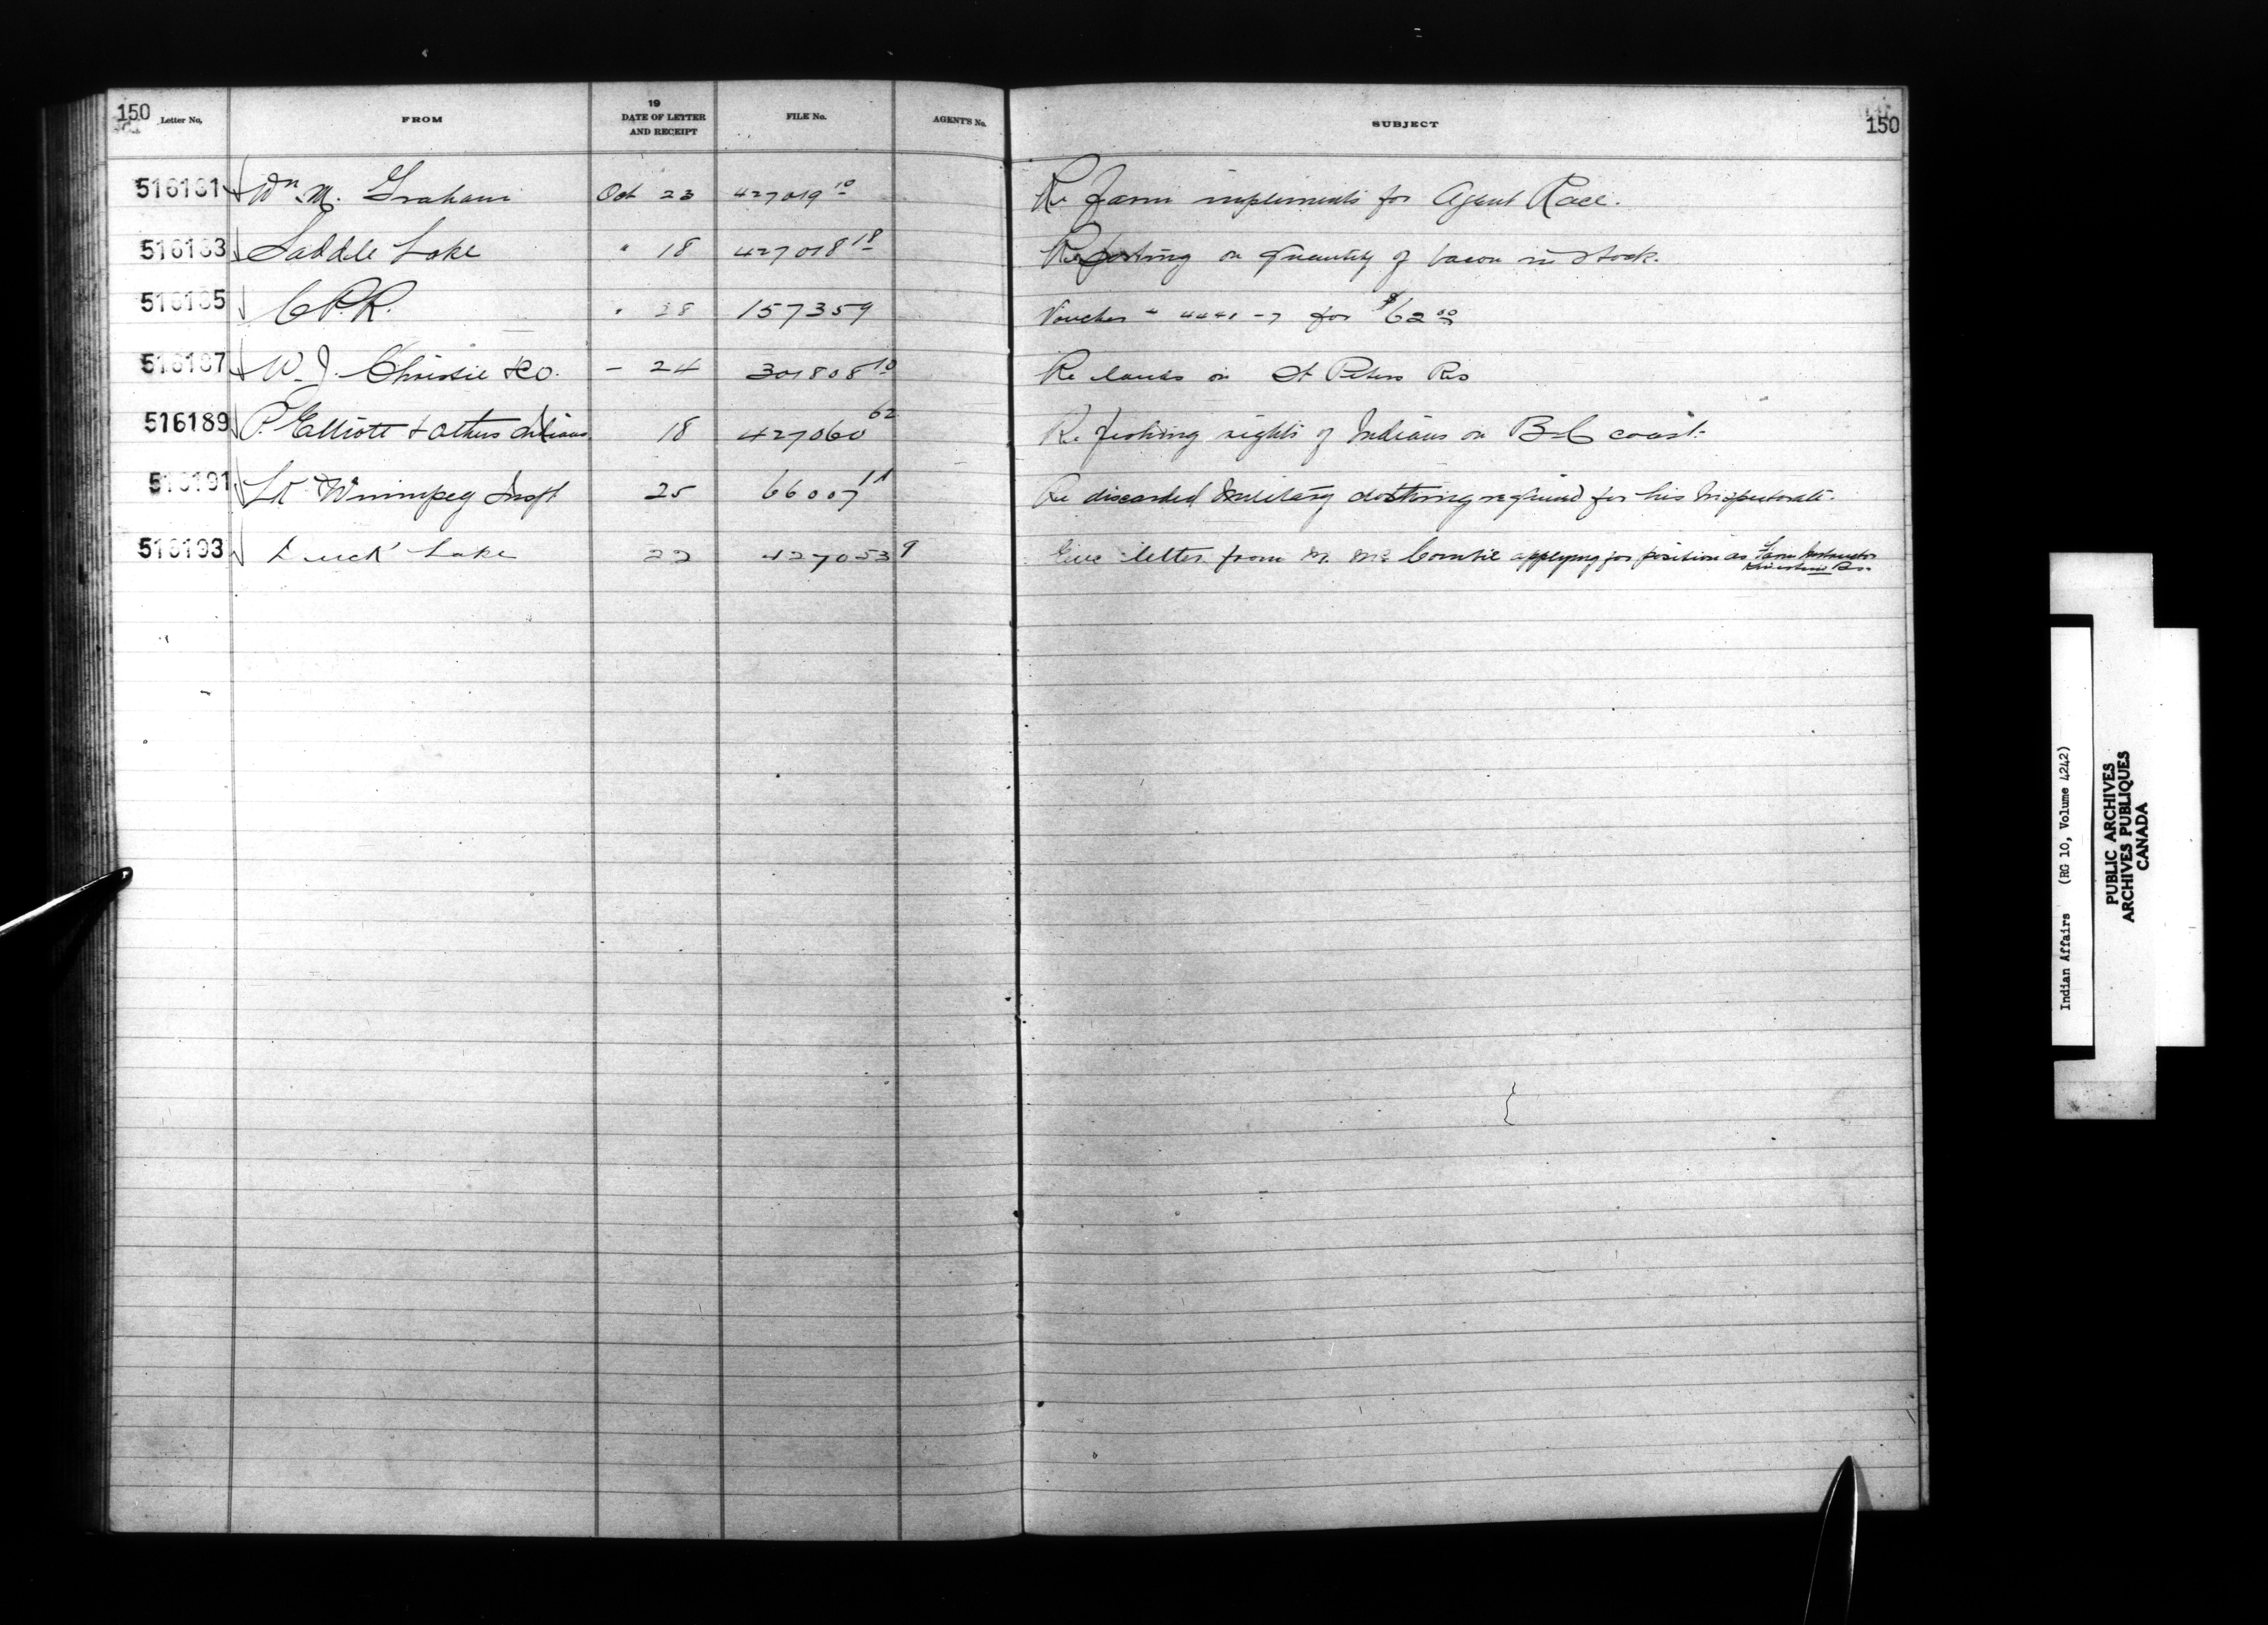 150 Letter No. FROM 19 DATE OF LETTER AND RECEIPT FILE No. AGENT'S No. SUBJECT 150
516181 Wm M. Graham Oct 23 427019 10 Re farm implements for Agent Race.
516183 Saddle Lake " 18 427018 18 Reporting on quantity of bacon in stock.
516185 C.P.R. " 28 157359 Voucher " 4441-7 for $62 00
516187 W. J. Christie & Co. - 24 301808 10 Re lands on St Peters Res
516189 P. Elliott & others Indians 18 427060 62 Re fishing rights of Indians on B-C coast.
516191 Lk Winnipeg Inspt 25 66007 11 Re discarded military clothing required for his Inspectorate.
516193 Duck Lake 22 427053 9 letter from M. applying for position as Farm Instructor
Res.
Indian Affairs (RG 10, Volume 4242)
PUBLIC ARCHIVES
ARCHIVES PUBLIQUES
CANADA